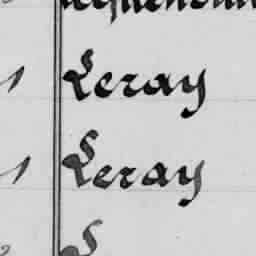 1 Leray
1 Leray